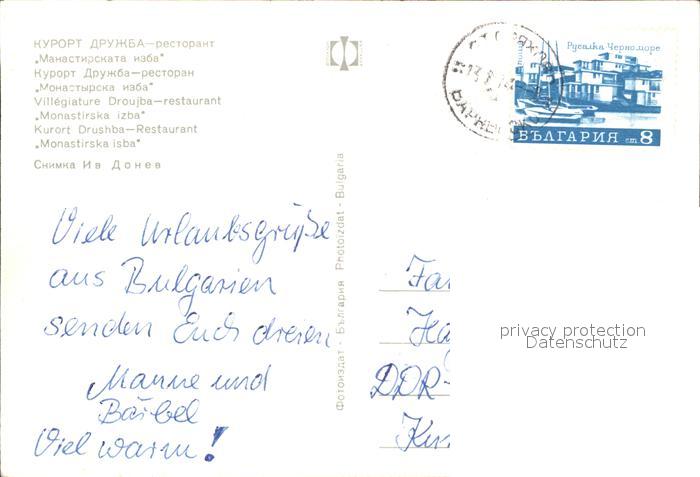 КУРОРТ ДРУЖБА—ресторант
„Манастирската изба"
Курорт Дружба—ресторан
„Монастырска изба"
Villégiature Droujba—restaurant
„Monastirska izba"
Kurort Drushba—Restaurant
„Monastirska isba"
Снимка Ив Донев
Русалка Черноморе
БЪЛГАРИЯ ст 8
Фотоиздат - България Photoizdat - Bulgaria
Viele Urlaubsgrüße
aus Bulgarien
senden Euch dreien
Manne und
Bärbel
Viel warm!
Fa
Ha
DDR-
privacy protection
Datenschutz